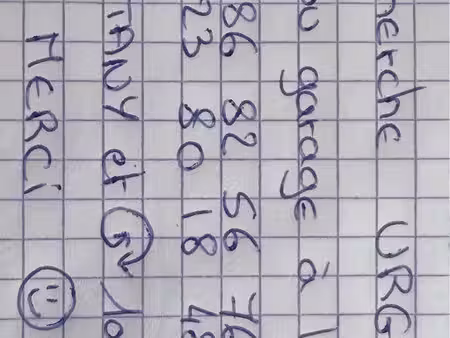 herche URG
u garage à l
86 82 56 76
23 80 18 48
ANY et 10
MERCi